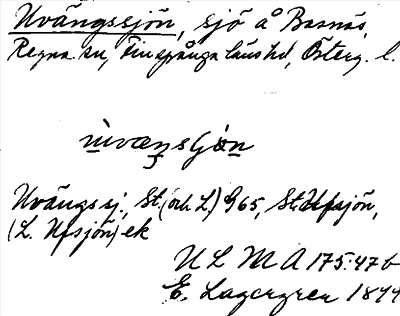 Uvängssjön, sjö å Basnäs,
Regna sn, Finspånga länshd, Österg. l.
ùvæŋsʃön
Uvängssj., St. (och L.) G 65, St. Ufsjön,
(L. Ufsjön) ek
ULMA 175:47 b
E. Lagergren 1894